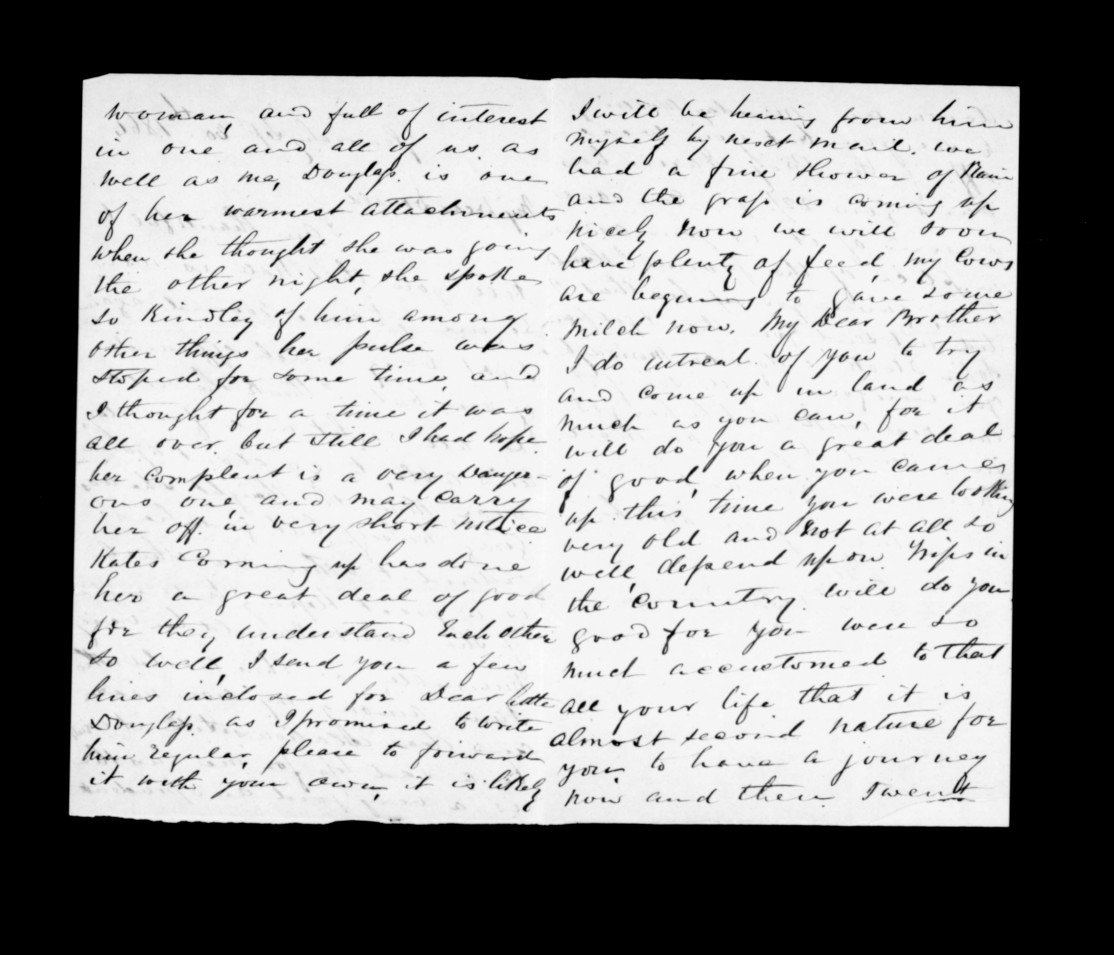 woman, and full of interest
in one and all of us. as
well as me, Douglass. is one
of her warmest attachments
when she thought she was going
the other night, she spoke
so Kindley of him among
other things her pulse was
stoped for some time, and
I thought for a time it was
all over. but still I had hope.
her complent is a very Danger-
ous one, and may carry
her off. in very short notice
Kates Corning up has done
her a great deal of good
for they understand Each other
so well, I send you a few
lines inclosed for Dear little
Douglass. as I promised to write
him regular, please to forward
it with your own, it is likely
I will be heiring from him
myself by next mail. we
had a fine shower of Rain
and the grass is coming up
nicely now we will soon
have plenty of feed, my Cows
are begening to gave some
milch now. My Dear Brother
I do intreat. of you to try
and come up in land as
much as you can, for it
will do you a great deal
of good, when you came
up this time you were looking
very old and not at all so
well, depend upon trips in
the country will do you
good for you were so
much accustomed to that
all your life that it is
almost second nature for
you, to have a journey
now and then